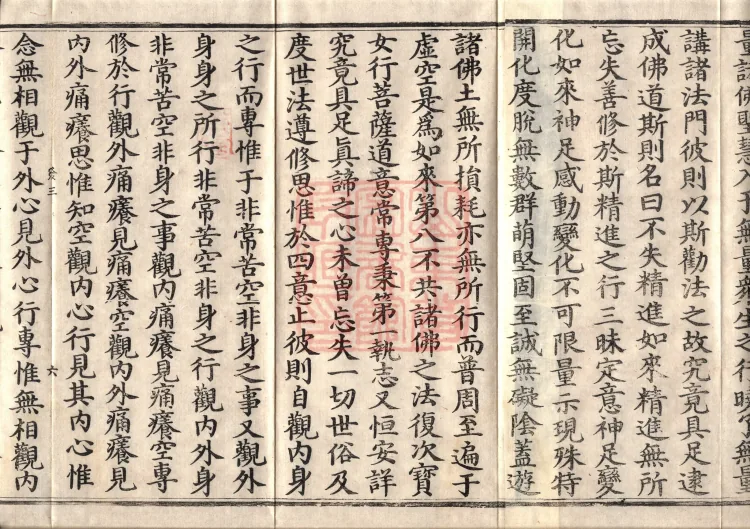 量諸佛聖慧入于無量衆生之行
講諸法門彼則以斯勸法之故究竟具足逮
成佛道斯則名曰不失精進如來精進無所
忘失善修於斯精進之行三昧定意神足變
化如來神足感動變化不可限量示現殊特
開化度脫無數群萌堅固至誠無礙陰蓋遊
諸佛土無所損耗亦無所行而普周至遍于
虛空是爲如來第八不共諸佛之法復次寶
女行菩薩道意常專秉第一執志又恒安詳
究竟具足眞諦之心未曾忘失一切世俗及
度世法遵修思惟於四意止彼則自觀內身
之行而專惟于非常苦空非身之事又觀外
身身之所行非常苦空非身之行觀內外身
非常苦空非身之事觀內痛癢見痛癢空專
修於行觀外痛癢見痛癢空觀內外痛癢見
內外痛癢思惟知空觀內心行見其內心惟
三 六
念無相觀于外心見外心行專惟無相觀內